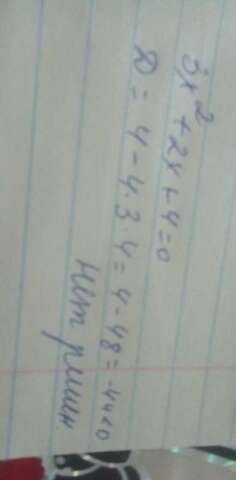 3x² + 2x + 4 = 0
D = 4 - 4 · 3 · 4 = 4 - 48 = -44 < 0
Нет решен